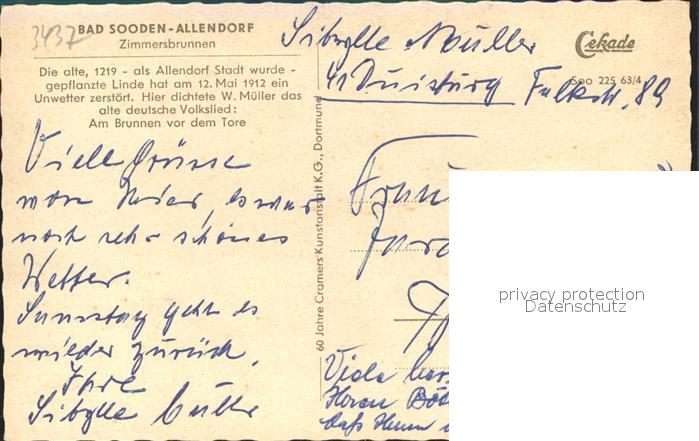 3437
BAD SOODEN-ALLENDORF
Zimmersbrunnen
Die alte, 1219 - als Allendorf Stadt wurde -
gepflanzte Linde hat am 12. Mai 1912 ein
Unwetter zerstört. Hier dichtete W. Müller das
alte deutsche Volkslied:
Am Brunnen vor dem Tore
Viele Grüsse
von hier, es war
noch sehr schönes
Wetter.
Samstag geht es
wieder zurück.
Ihre
Sibylle Müller
60 Jahre Cramers Kunstanstalt K.G., Dortmund
Sibylle Müller
41 Duisburg Falkstr. 89
Cekade
Soo 225 63/4
Viele
Herrn
privacy protection
Datenschutz